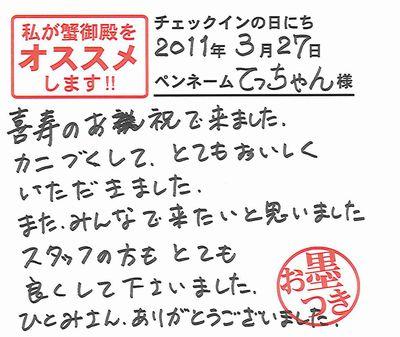 私が蟹御殿を
オススメ
します!!
チェックインの日にち
2011年3月27日
ペンネームてっちゃん様
喜寿のお祝で来ました.
カニづくして、とてもおいしく
いただきました.
また、みんなで来たいと思いました
スタッフの方もとても
良くして下さいました.
ひとみさん、ありがとうございました.
お墨つき